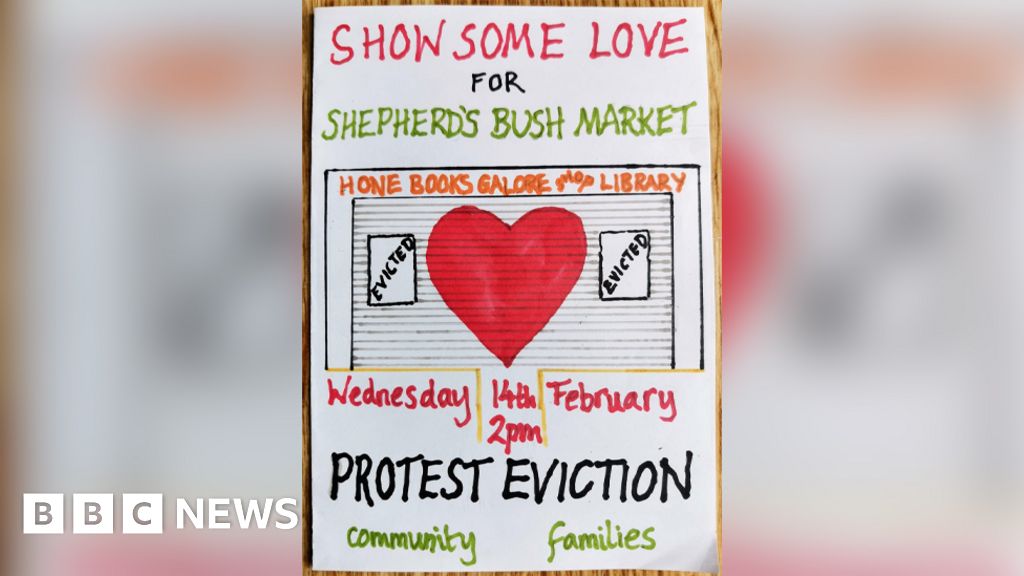 SHOW SOME LOVE
FOR
SHEPHERD'S BUSH MARKET
HONE BOOKS GALORE shop LIBRARY
EVICTED
EVICTED
Wednesday 14th February
2pm
PROTEST EVICTION
community families
BBC NEWS